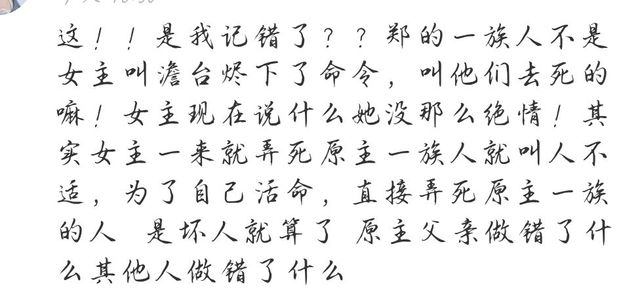 这！！是我记错了？？郑的一族人不是
女主叫澹台烬下了命令，叫他们去死的
嘛！女主现在说什么她没那么绝情！其
实女主一来就弄死原主一族人就叫人不
适，为了自己活命，直接弄死原主一族
的人 是坏人就算了 原主父亲做错了什
么其他人做错了什么